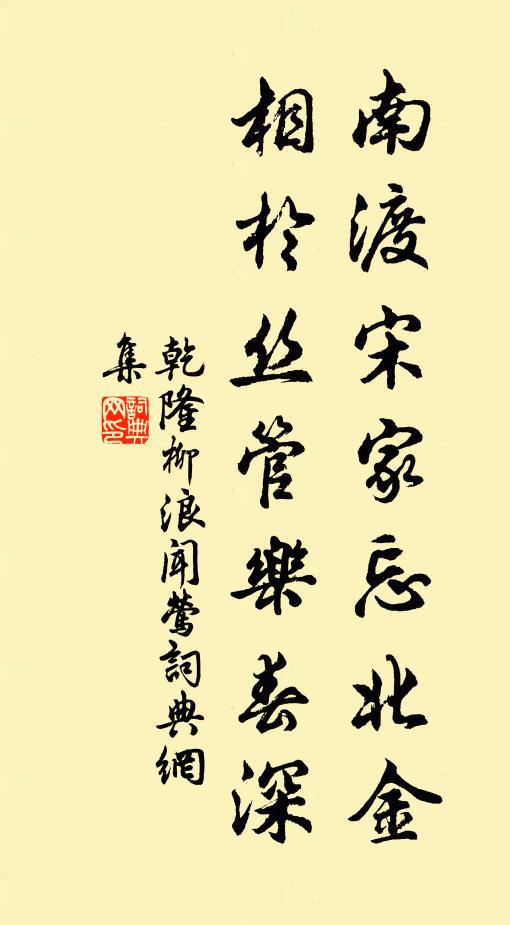 南渡宋家忘北金
相於丝管樂春深
乾隆柳浪闻莺詞典網
集
詞典
网印